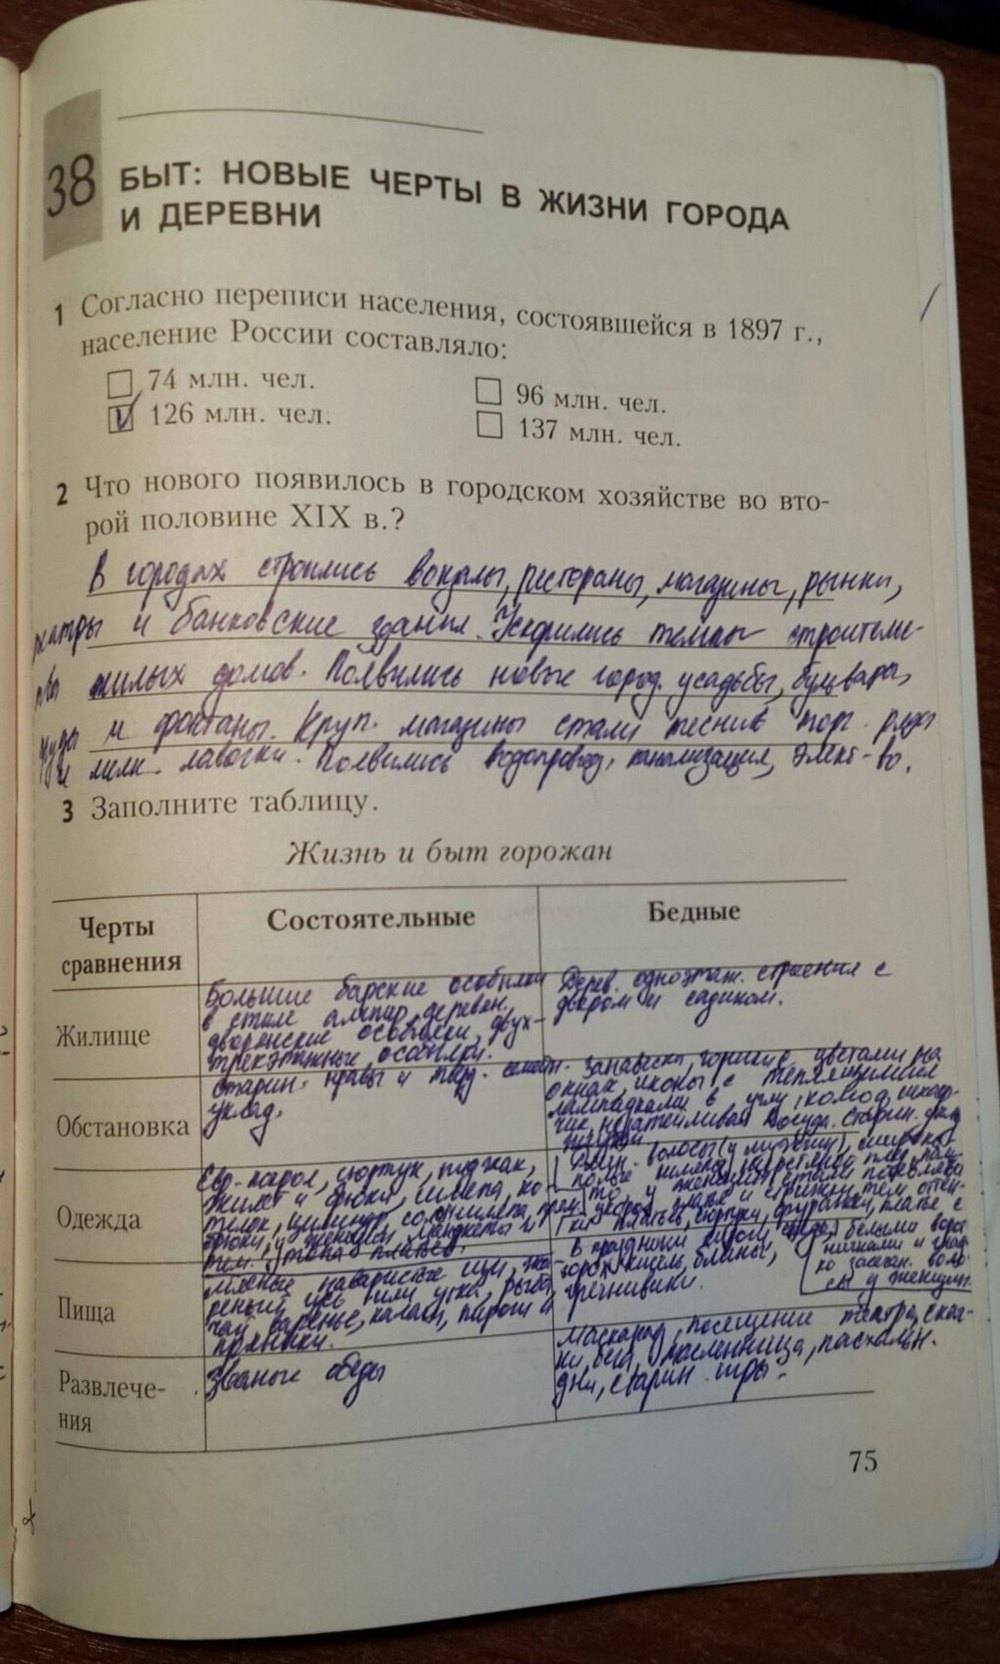 38
БЫТ: НОВЫЕ ЧЕРТЫ В ЖИЗНИ ГОРОДА
И ДЕРЕВНИ
1 Согласно переписи населения, состоявшейся в 1897 г.,
население России составляло:
74 млн. чел.
V 126 млн. чел.
96 млн. чел.
137 млн. чел.
2 Что нового появилось в городском хозяйстве во вто-
рой половине XIX в.?
В городах строились вокзалы, рестораны, магазины, рынки,
театры и банковские здания. Ускорились темпы строитель-
ства жилых домов. Появились новые город. усадьбы, бульвары,
пруды и фонтаны. Круп. магазины стали теснить торг. ряды
и мелк. лавочки. Появились водопровод, канализация, элект-во.
3 Заполните таблицу.
Жизнь и быт горожан
Черты
сравнения
Состоятельные
Бедные
Жилище
Большие барские особняки
в стиле ампир, деревен.
дворянские особняки, двух-
трехэтажные особняки.
Дерев. одноэтаж. строения с
двором и садиком.
Обстановка
старин. нравы и тяд. семейн.
уклад.
занавески, горшки с цветами на
окнах, иконы с теплящимися
лампадками в углу, комод,
неразейливая посуда. Старин. уклад
жизни
Одежда
Евр. покрой, сюртук, пиджак,
жилет и брюки, шляпа, ко-
телок, цилиндр, солом. шляпа,
брюки, у женщин
Длин. волосы (у мужчин), широко-
полые шляпы,
платье с
белыми ворот
ничками и глад
ко зачесан. воло
сы у женщин.
Пища
мясные наваристые щи,
гусь или утка, рыба,
чай, варенье, калачи, пироги и
В праздники пироги,
горох, кисель, блины,
гречневики.
Развлече-
ния
Званые обеды
Маскарад, посещение театра, скач-
ки, бега, масленница, пасхальн.
дни, старин. игры.
75